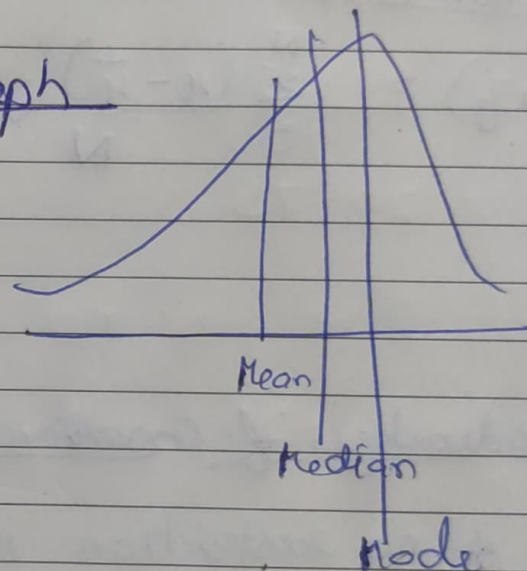 Mean
Median
Mode